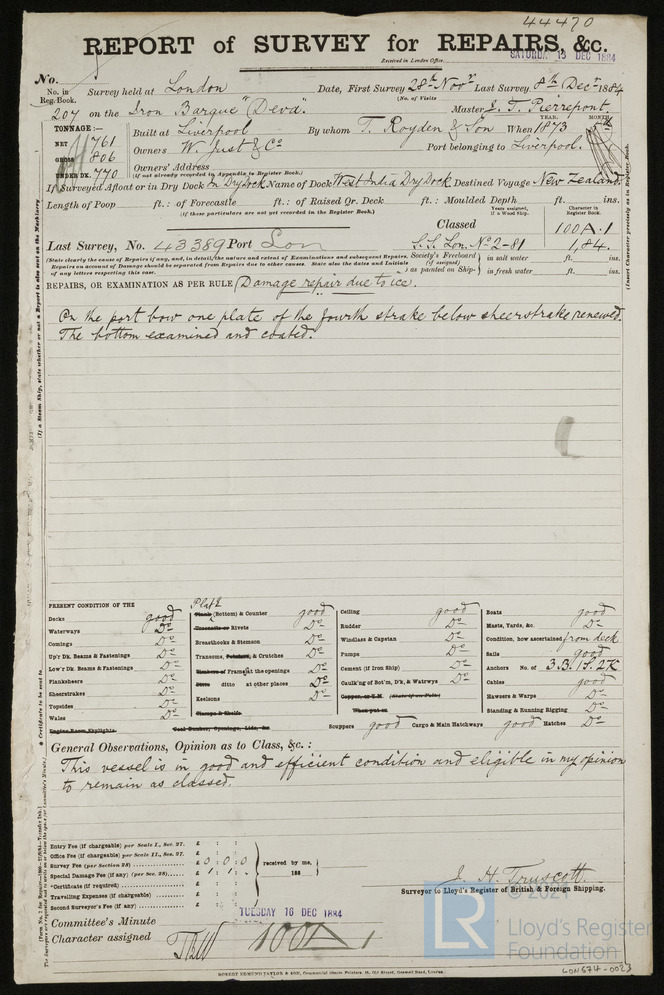 44470
REPORT of SURVEY for REPAIRS, &c.
Received in London Office
SATURDAY 13 DEC 1884
No.
No. in Reg. Book.
Survey held at London Date, First Survey 28th Novr Last Survey 8th Decr 1884
(No. of Visits
207 on the Iron Barque "Deva". Master J. T. Pierrepont.
TONNAGE:—
NET 761
GROSS 806
UNDER DK. 770
YEAR. MONTH.
Built at Liverpool By whom T. Royden & Son When 1873
Owners W. Just & Co Port belonging to Liverpool.
Owners' Address
(if not already recorded in Appendix to Register Book.)
If Surveyed Afloat or in Dry Dock In Dry Dock Name of Dock West India Dry Dock Destined Voyage New Zealand.
Length of Poop ft.: of Forecastle ft.: of Raised Qr. Deck ft.: Moulded Depth ft. ins.
(If these particulars are not yet recorded in the Register Book.)
Years assigned, if a Wood Ship. Character in Register Book.
Classed 100A.1
Last Survey, No. 43389 Port Lon S.S. Lon. No. 2-81 1,84.
(State clearly the cause of Repairs if any, and, in detail, the nature and extent of Examinations and subsequent Repairs.
Repairs on account of Damage should be separated from Repairs due to other causes. State also the dates and Initials
of any letters respecting this case.
Society's Freeboard (if assigned) as painted on Ship- in salt water ft. ins.
in fresh water ft. ins.
REPAIRS, OR EXAMINATION AS PER RULE (Damage repair due to ice.
On the port bow one plate of the fourth strake below sheerstrake renewed.
The bottom examined and coated.
PRESENT CONDITION OF THE
Decks good
Waterways Do
Comings Do
Up'r Dk. Beams & Fastenings Do
Low'r Dk. Beams & Fastenings Do
Planksheers Do
Sheerstrakes Do
Topsides Do
Wales Do
Engine Room Skylights
Coal Bunker, Openings, Lids, &c.
Plate
Plank (Bottom) & Counter good
Treenails or Rivets Do
Breasthooks & Stemson Do
Transoms, Pointers, & Crutches Do
Timbers of Frames at the openings Do
Ditto ditto at other places Do
Keelsons Do
Clamps & Shelfs
Ceiling good
Rudder Do
Windlass & Capstan Do
Pumps Do
Cement (if Iron Ship) Do
Caulk'ng of Bot'm, D'k, & Watrwys Do
Copper, or Y.M. (State if on Felt)
When put on
Scuppers good Cargo & Main Hatchways good Hatches Do
Boats good
Masts, Yards, &c. Do
Condition, how ascertained from deck
Sails good
Anchors No. of 3.B. 1S. 2K
Cables good
Hawsers & Warps Do
Standing & Running Rigging Do
General Observations, Opinion as to Class, &c.:
This vessel is in good and efficient condition and eligible in my opinion
to remain as classed.
Entry Fee (if chargeable) per Scale I., Sec. 27. £ : :
Office Fee (if chargeable) per Scale II., Sec. 27. £ : :
Survey Fee (per Section 28) £ 0 : 0 : 0
Special Damage Fee (if any) (per Sec. 28) £ 1 : 1 :
Certificate (if required) £ : :
Travelling Expenses (if chargeable) £ : :
Second Surveyor's Fee (if any) £ : :
received by me,
188
J. H. Truscott.
Surveyor to Lloyd's Register of British & Foreign Shipping.
TUESDAY 16 DEC 1884
Committee's Minute
Character assigned 100A1
© 2021
LR
Lloyd's Register
Foundation
ROBERT EDMUND TAYLOR & SON,
LON574-0023